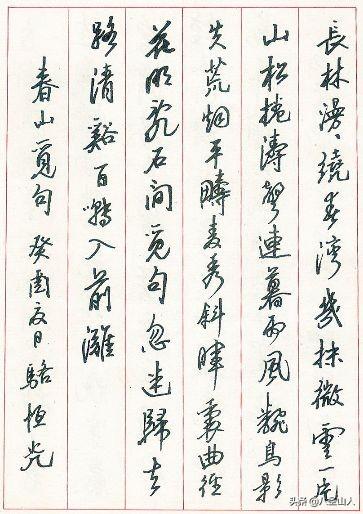 長林漫〻繞春灣幾抹微雲一角
山松捲濤聲連暮雨風翻鳥影
失荒烟平疇麦秀斜暉裏曲径
花明乱石間覓句忽迷歸去
路清谿百囀入前灘
春山覓句 癸酉夏日 駱恒光
头条